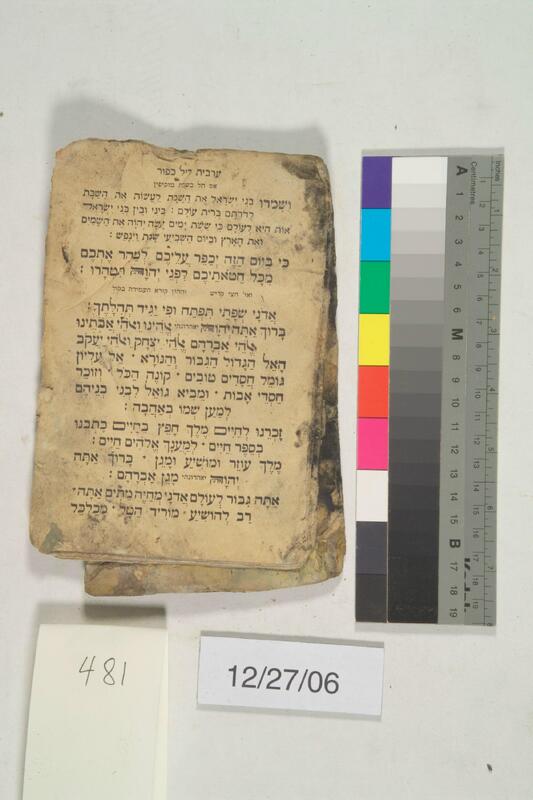 ערבית ליל כפור
אם חל בשבת מוסיפין
ושמרו בני ישראל את השבת לעשות את השבת
לדרתם ברית עולם : ביני ובין בני ישראל
אות היא לעולם כי ששת ימים עשה יהוה את השמים
ואת הארץ וביום השביעי שבת וינפש :
כי ביום הזה יכפר עליכם לטהר אתכם
מכל חטאתיכם לפני יהוה תטהרו :
ואו׳ חצי קדיש והחזן קורא העמידה בקול
אדני שפתי תפתח ופי יגיד תהלתך :
ברוך אתה יהוה יאהדונהי אלהינו ואלהי אבותינו
אלהי אברהם אלהי יצחק ואלהי יעקב
האל הגדול הגבור והנורא · אל עליון
גומל חסדים טובים · קונה הכל · וזוכר
חסדי אבות · ומביא גואל לבני בניהם
למען שמו באהבה :
זכרנו לחיים מלך חפץ בחיים כתבנו
בספר חיים · למענך אלהים חיים :
מלך עוזר ומושיע ומגן · ברוך אתה
יהוה יאהדונהי מגן אברהם :
אתה גבור לעולם אדני מחיה מתים אתה ·
רב להושיע · מוריד הטל · מכלכל
Inches
Centimetres
A 1 2 3 4 5 6 M 8 9 10 11 12 13 14 15 B 17 18 19
1 2 3 4 5 6 7 8 9 10 11 12 13 14 15 16 17 18 19
1 2 3 4 5 6 7 8
481
12/27/06